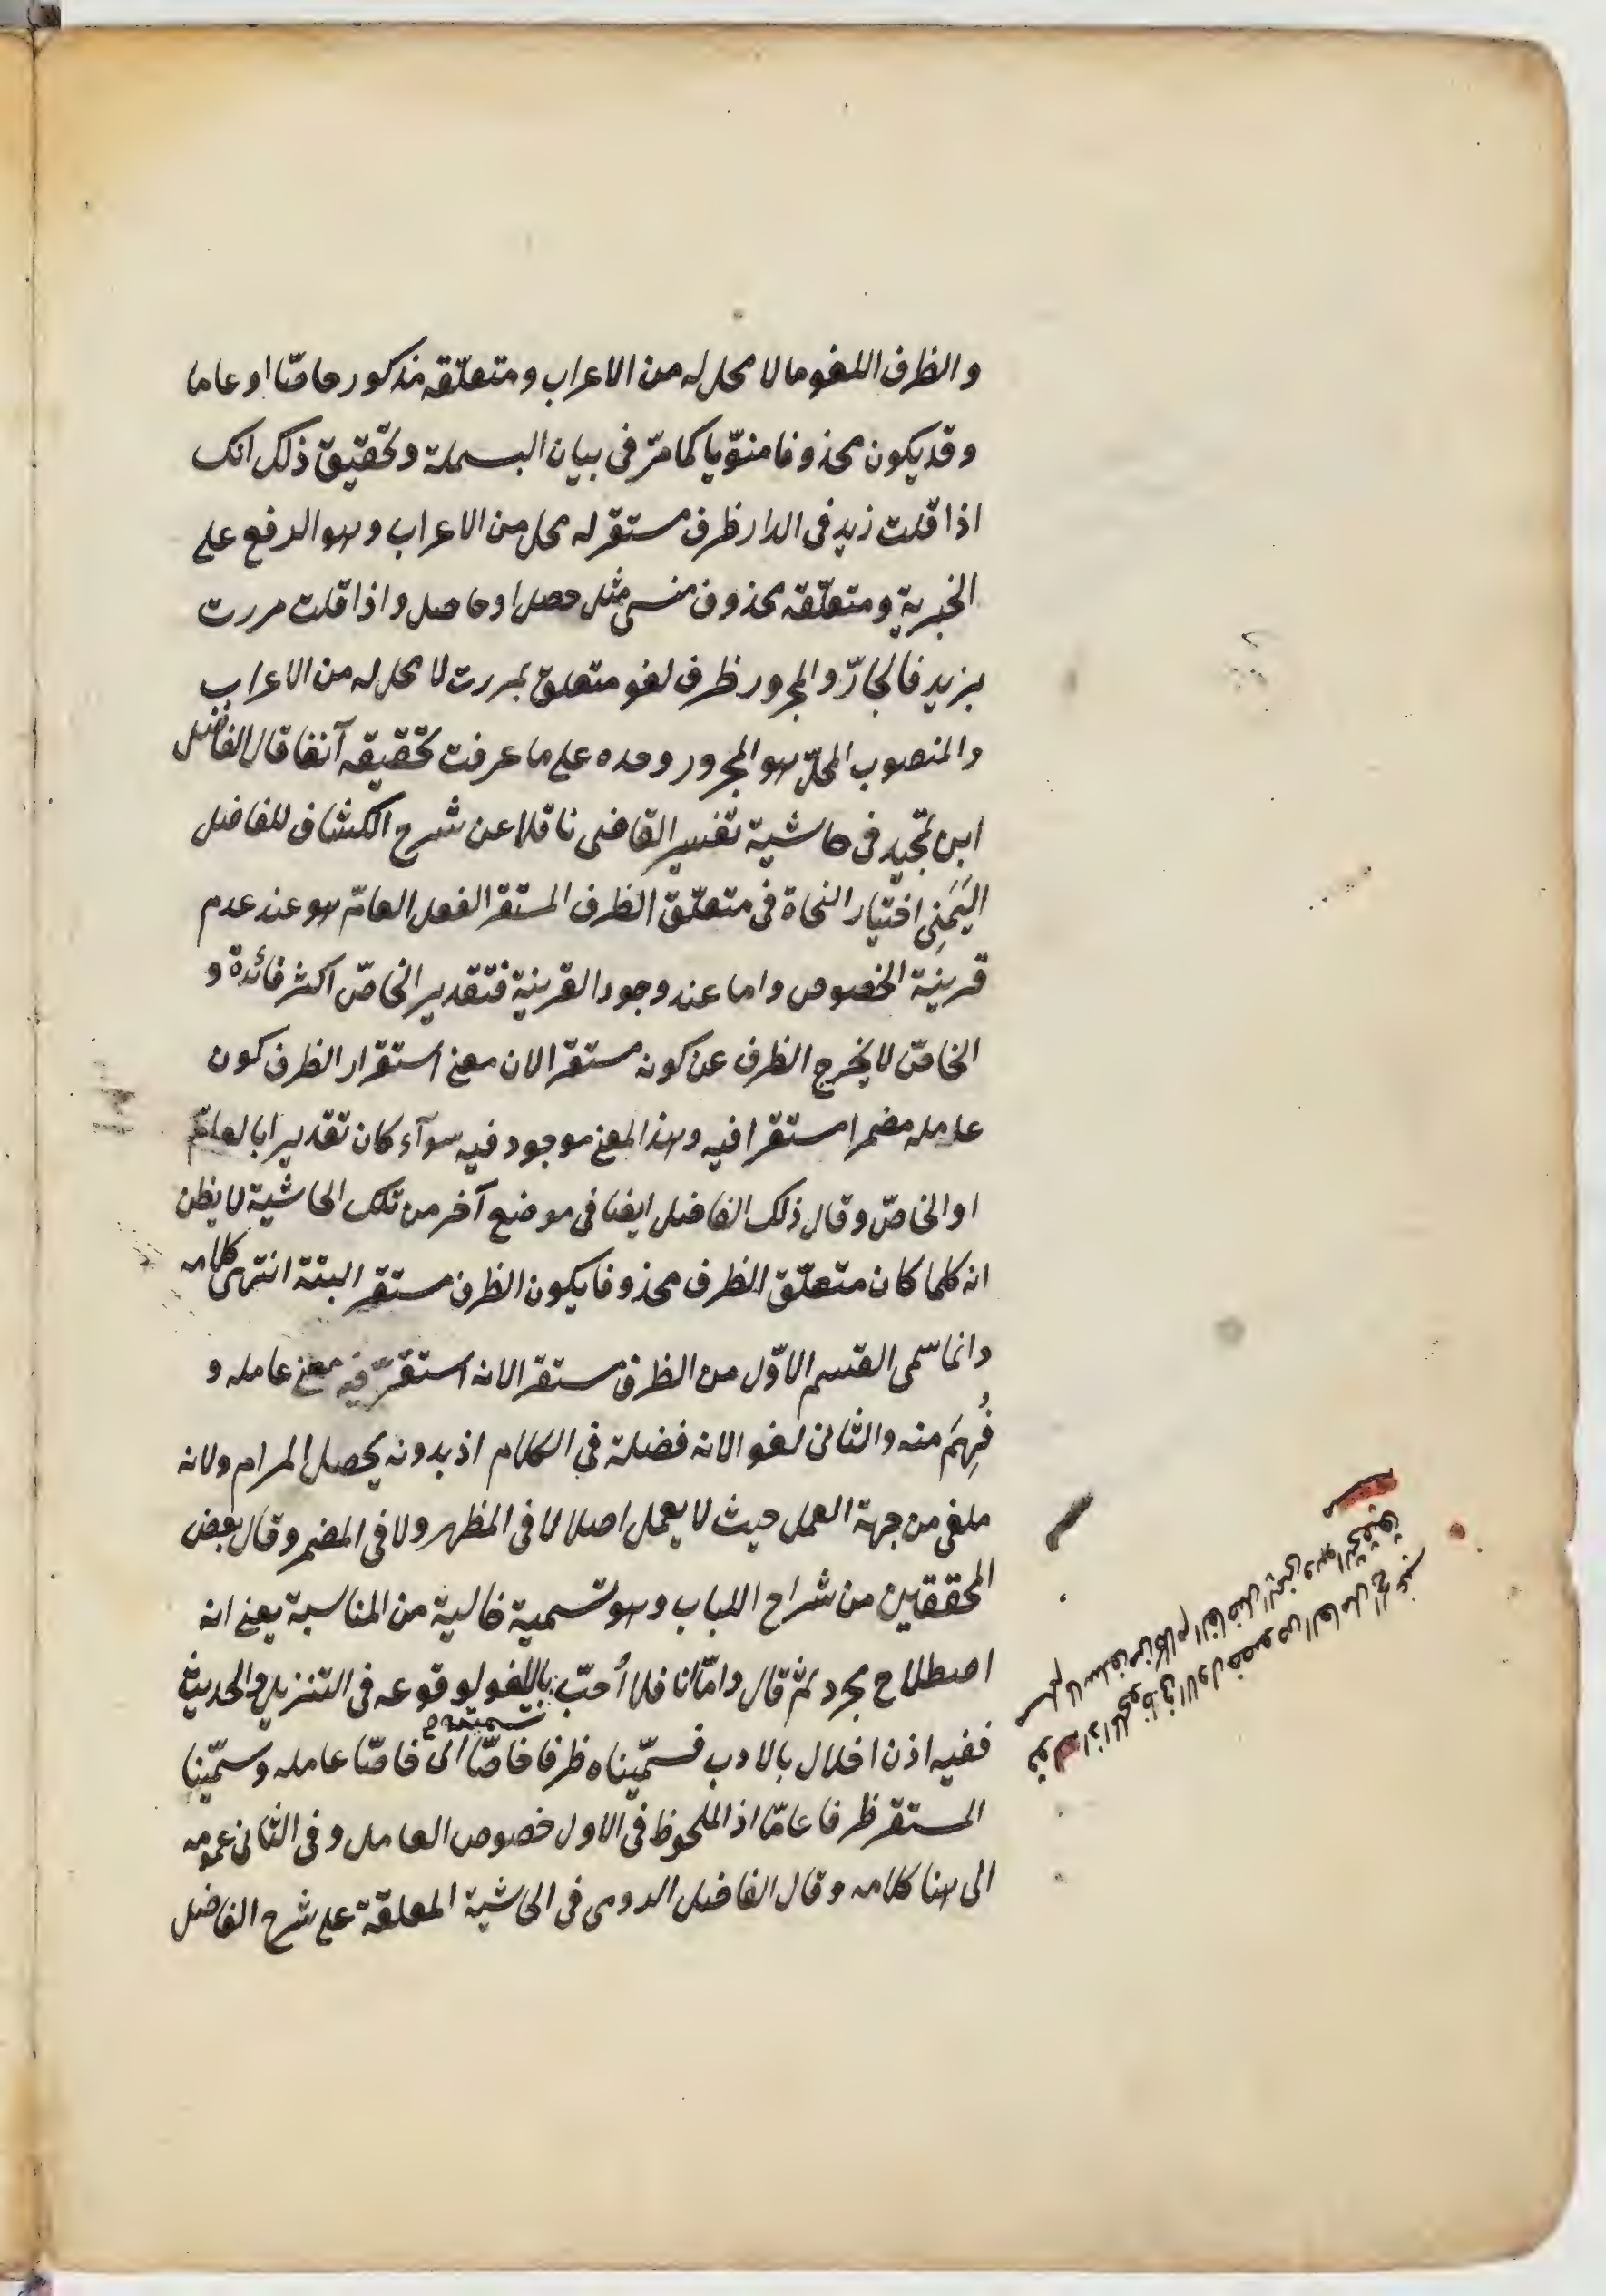 والظرف اللغو ما لا محل له من الاعراب ومتعلّقه مذكور خاصّا او عاما
وقد يكون محذوفا منوّيا كما مرّ فى بيان البسملة وتحقيق ذلك انك
اذا قلت زيد فى الدار ظرف مستقر له محل من الاعراب وهو الرفع على
الخبرية ومتعلّقه محذوف منسىّ مثل حصل او حاصل واذا قلت مررت
بزيد فالجارّ والمجرور ظرف لغو متعلق بمررت لا محل له من الاعراب
والمنصوب المحلّ هو المجرور وحده على ما عرفت تحقيقه آنفا قال الفاضل
ابن تمجيد فى حاشية تفسير القاضى ناقلا عن شرح الكشاف للفاضل
اليَمَنِى اختيار النحاة فى متعلّق الظرف المستقر الفعل العامّ هو عند عدم
قرينة الخصوص واما عند وجود القرينة فتقدير الخاصّ اكثر فائدة و
الخاصّ لا يخرج الظرف عن كونه مستقرا لان معنى استقرار الظرف كون
عامله مضمرا مستقرا فيه وهذا المعنى موجود فيه سوآء كان تقديرا بالعامّ
او الخاصّ وقال ذلك الفاضل ايضا فى موضع آخر من تلك الحاشية لا يظن
انه كلما كان متعلّق الظرف محذوفا يكون الظرف مستقر البتة انتهى كلامه
وانما سمّى القسم الاوّل من الظرف مستقرا لانه استقرّ فيه معنى عامله و
فُهِمَ منه والثانى لغوا لانه فضلة فى الكلام اذ بدونه يحصل المرام ولانه
ملغى من جهة العمل حيث لا يعمل اصلا لا فى المظهر ولا فى المضمر وقال بعض
المحققين من شراح اللباب وهو تسمية خالية من المناسبة يعنى انه
اصطلاح مجرد ثم قال وامّا انا فلا اُحبّ باللغو لوقوعه فى التنزيل والحديث
تسميته
ففيه اذن اخلال بالادب فسمّيناه ظرفا خاصّا اى خاصّا عامله وسمّينا
المستقر ظرفا عامّا اذ الملحوظ فى الاول خصوص العامل وفى الثانى عمومه
الى هنا كلامه وقال الفاضل الرومى فى الحاشية المعلقة على شرح الفاضل
قوله اذ الملحوظ فى الاول خصوص العامل الخ غير
مسلم لما سلف من كلام الفاضل اليمنى وهو التحقيق